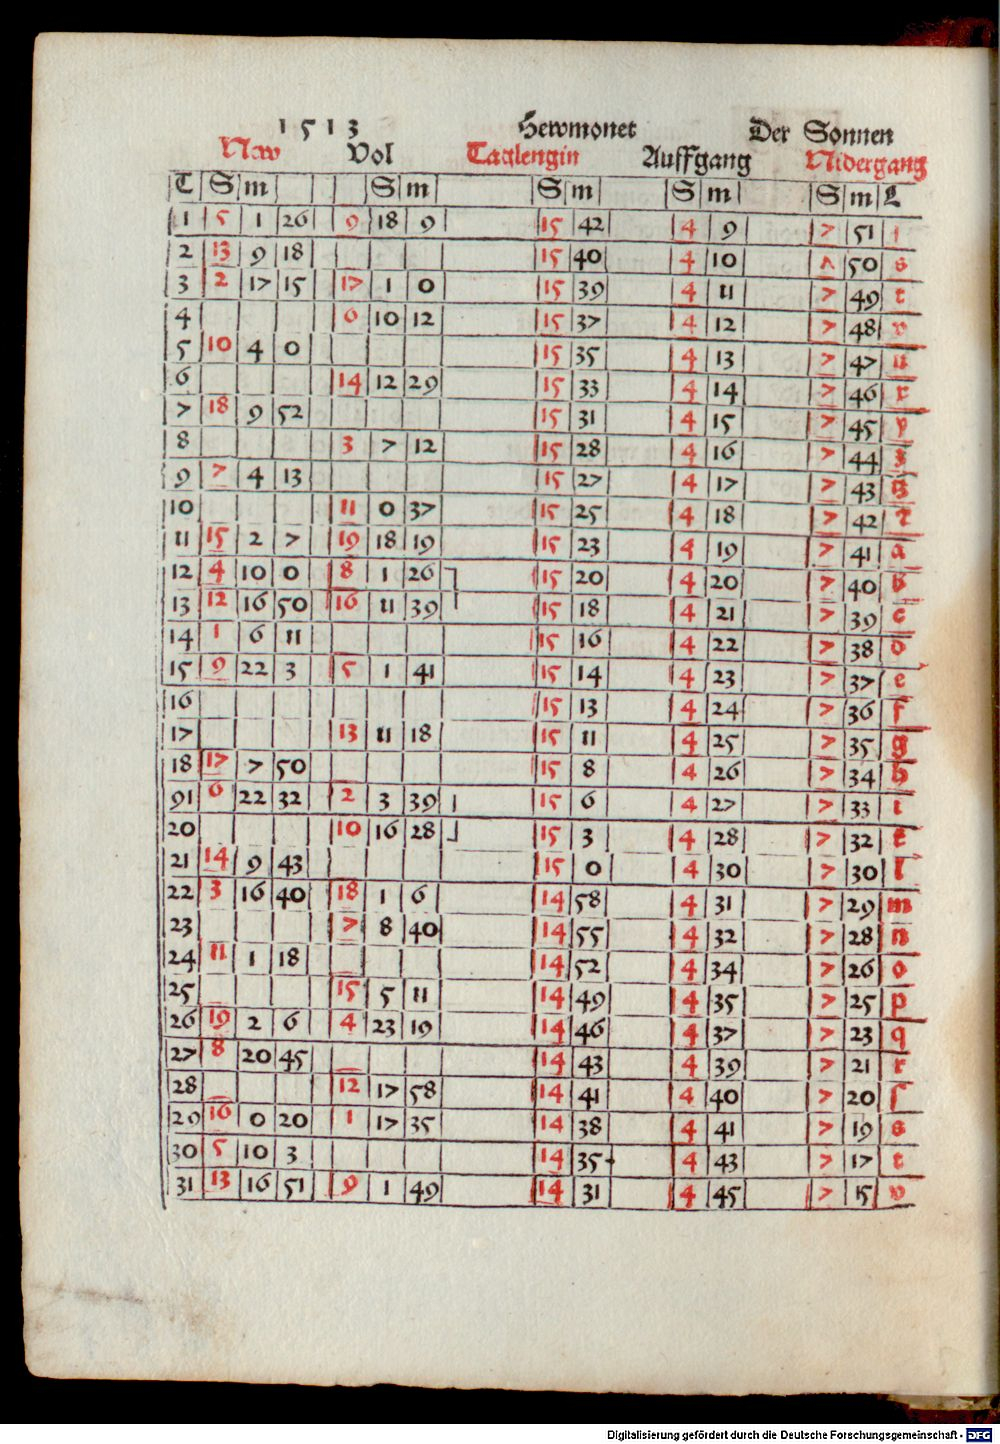 1513 Hewmonet Der Sonnen
New Vol Taglengin Auffgang Nidergang
T S m S m S m S m S m L
1 5 1 26 9 18 9 15 42 4 9 7 51
2 13 9 18 15 40 4 10 50 s
3 2 17 15 17 1 0 15 39 4 11 7 49 t
4 6 10 12 15 37 4 12 7 48 v
5 10 4 0 15 35 4 13 7 47 u
6 14 12 29 15 33 4 14 7 46
7 18 9 52 15 31 4 15 7 45 y
8 3 7 12 15 28 4 16 7 44 z
9 7 4 13 15 27 4 17 7 43
10 11 0 37 15 25 4 18 7 42
11 15 2 7 19 18 19 15 23 4 19 7 41 a
12 4 10 0 8 1 26 15 20 4 20 7 40 b
13 12 16 50 16 11 39 15 18 4 21 7 39 c
14 1 6 11 15 16 4 22 7 38 d
15 9 22 3 5 1 41 15 14 4 23 7 37 e
16 15 13 4 24 7 36 f
17 13 11 18 15 11 4 25 7 35 g
18 17 7 50 15 8 4 26 7 34 h
91 6 22 32 2 3 39 15 6 4 27 7 33 i
20 10 16 28 15 3 4 28 7 32
21 14 9 43 15 0 4 30 7 30 l
22 3 16 40 18 1 6 14 58 4 31 7 29 m
23 7 8 40 14 55 4 32 7 28 n
24 11 1 18 14 52 4 34 7 26 o
25 15 5 11 14 49 4 35 7 25 p
26 19 2 6 4 23 19 14 46 4 37 7 23 q
27 8 20 45 14 43 4 39 7 21 r
28 12 17 58 14 41 4 40 7 20 ſ
29 16 0 20 1 17 35 14 38 4 41 7 19 s
30 5 10 3 14 35 4 43 7 17 t
31 13 16 51 9 1 49 14 31 4 45 7 15 v
Digitalisierung gefördert durch die Deutsche Forschungsgemeinschaft - DFG